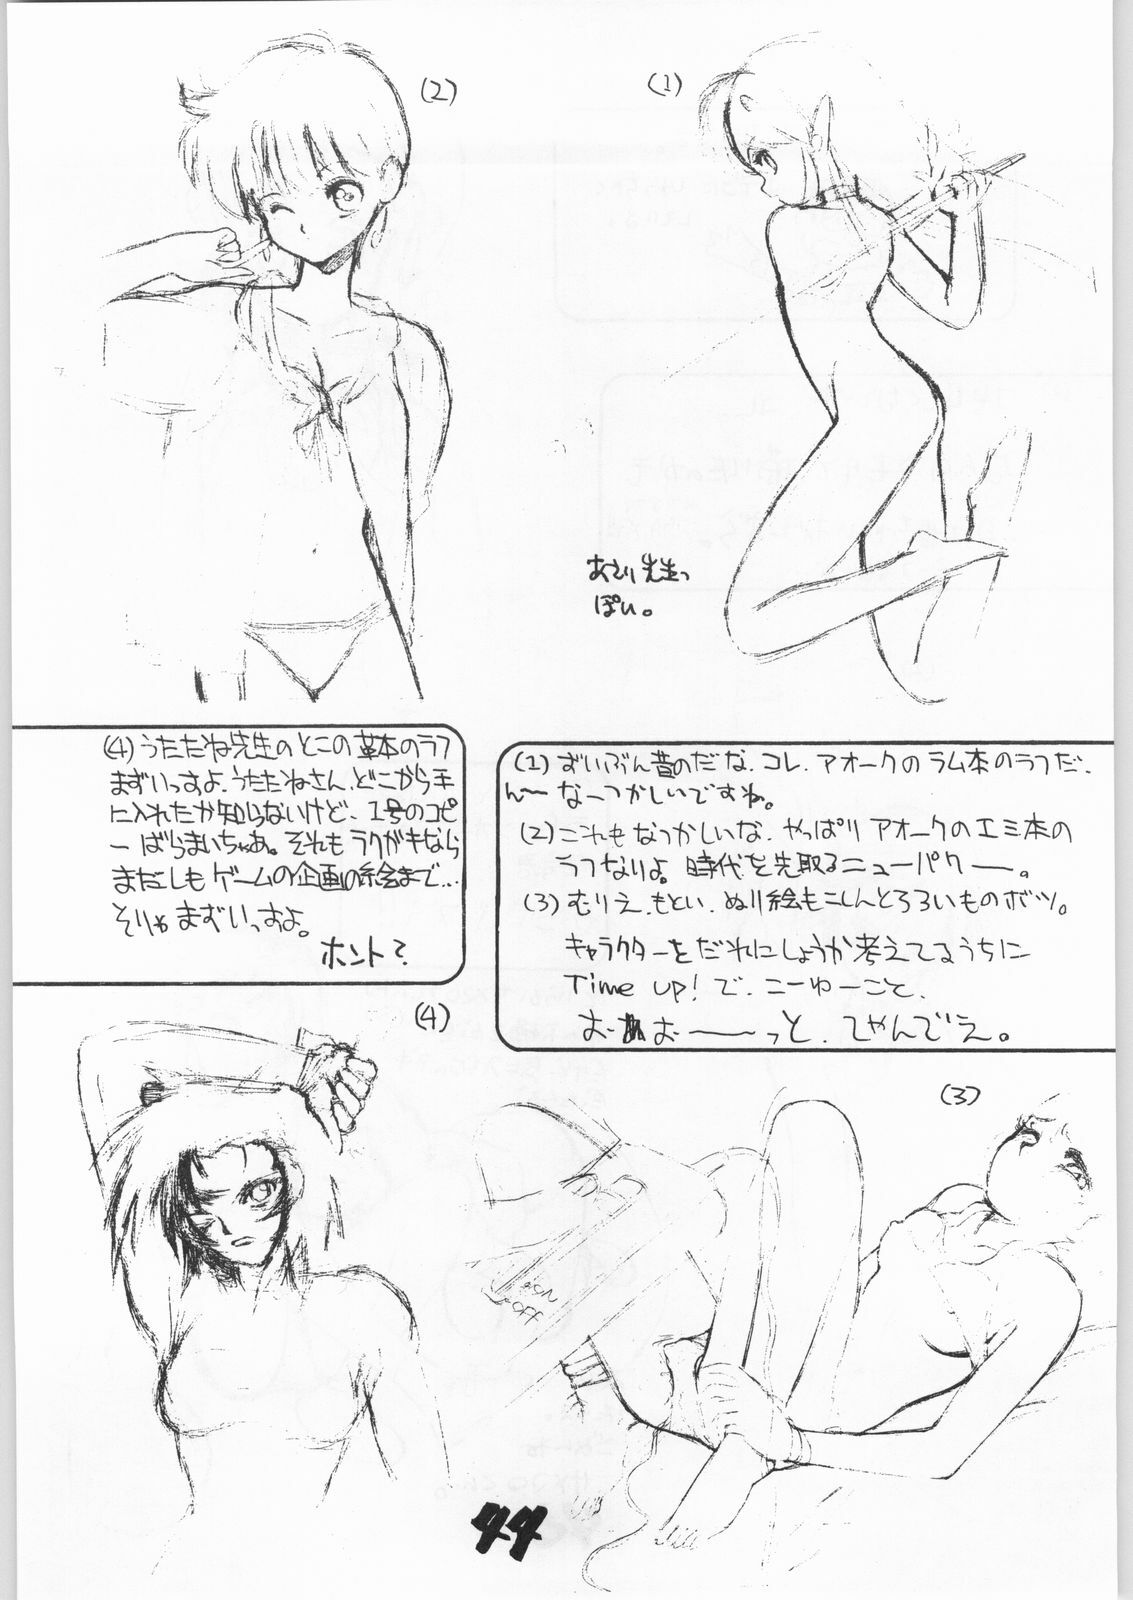 (2)
(1)
あさり先生っ
ぽい。
(4) うたたね先生のとこの革本のラフ
まずいっすよ、うたたねさん、どこから手
に入れたか知らないけど、1号のコピ
ー ばらまいちゃあ。それもラクガキなら
まだしもゲームの企画の絵まで…
そりゃまずいっすよ。
ホント?
(1) ずいぶん昔のだな、コレ、アオークのラム本のラフだ、
ん〜 なーつかしいですね。
(2) これもなつかしいな、やっぱりアオークのエミ本の
ラフなりよ。時代を先取るニューパクー。
(3) むりえ、もとい、ぬり絵もこしんとろろいものボツ。
キャラクターをだれにしょうか考えてるうちに
Time up! で、こーゆーこと、
おーあおー〜っと、てやんでえ。
(4)
(3)
ON
OFF
44